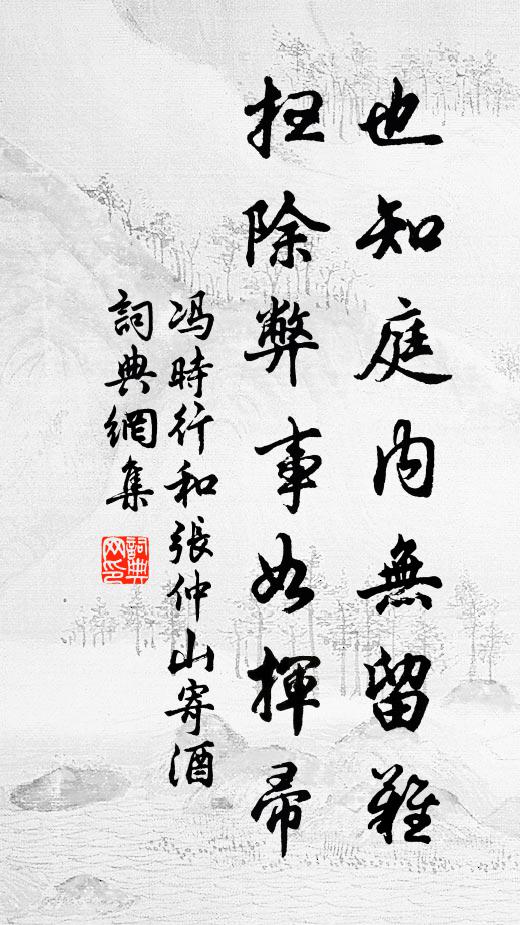 也知庭内無留難
掃除弊事如揮帚
冯時行和張仲山寄酒
詞典網集
詞典网印